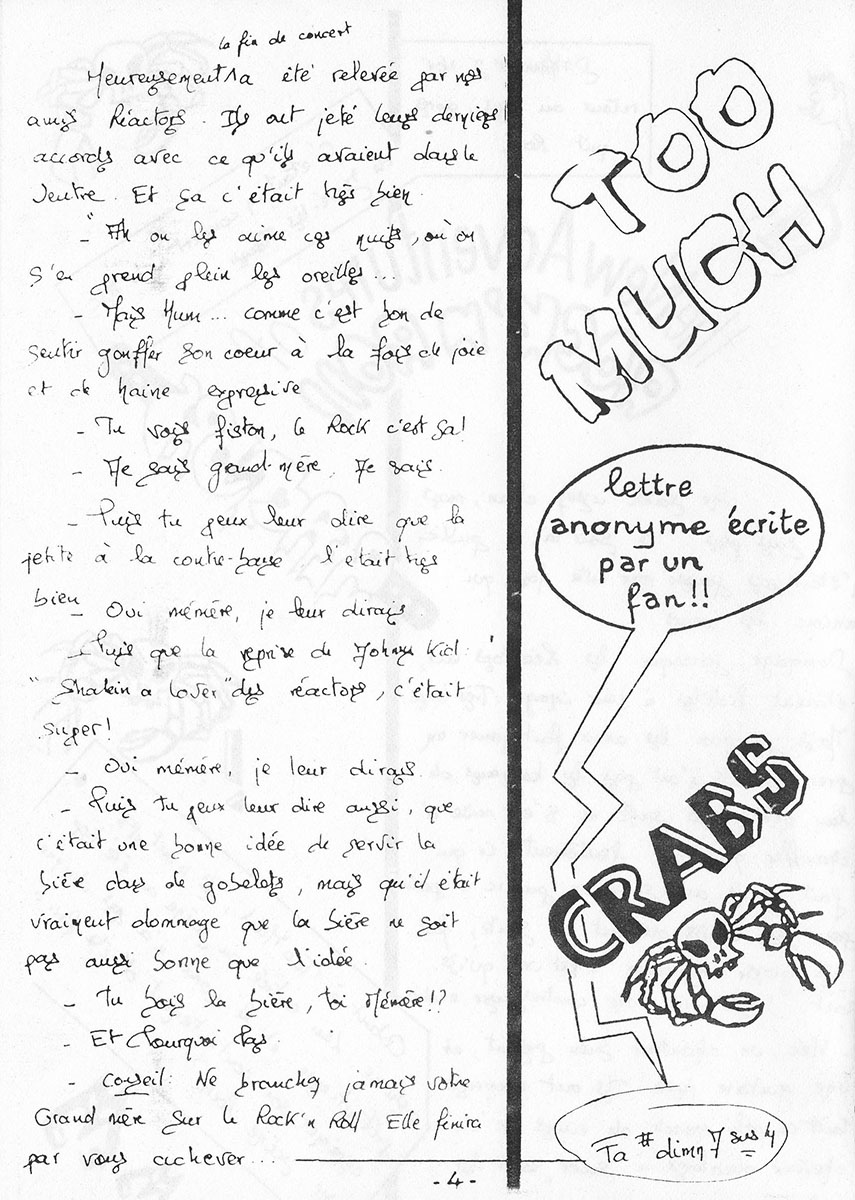 la fin de concert
Heureusement a été relevée par nos
amis Réactors. Ils ont jeté leurs derniers
accords avec ce qu'ils avaient dans le
ventre. Et ça c'était très bien.
- "Ah on les aime ces nuits, où on
s'en prend plein les oreilles...
- Mais Hum... comme c'est bon de
sentir gonffer son coeur à la fois de joie
et de haine expressive
- Tu vois fiston, le Rock c'est ça!
- Je sais grand-mère, Je sais.
- Puis tu peux leur dire que la
petite à la contre-basse, l'était très
bien
- Oui mémère, je leur dirais
- Puis que la reprise de Johnny Kid:
"Shakin a lover" des réactors, c'était
super!
- Oui mémère, je leur dirais.
- Puis tu peux leur dire aussi, que
c'était une bonne idée de servir la
bière dans de gobelets, mais qu'il était
vraiment dommage que la bière ne soit
pas aussi bonne que l'idée.
- Tu bois la bière, toi Mémère!?
- Et Pourquoi Pas.
- Conseil: Ne branchez jamais votre
Grand mère sur le Rock'n Roll Elle finira
par vous achever...
- 4 -
TOO
MUCH
lettre
anonyme écrite
par un
fan!!
CRABS
Fa # dimn 7 sus 4